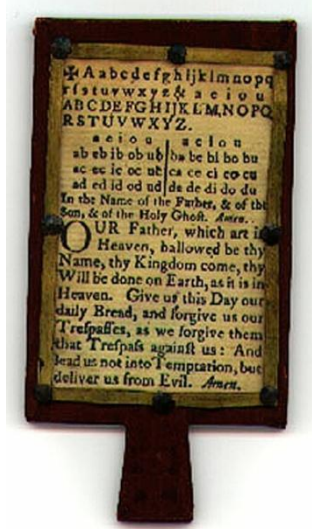 ✠ A a b c d e f g h i j k l m n o p q
r ſ s t u v w x y z & a e i o u
A B C D E F G H I J K L M, N O P Q
R S T U V W X Y Z.
a e i o u a e i o u
ab eb ib ob ub ba be bi bo bu
ac ec ic oc uc ca ce ci co cu
ad ed id od ud da de di do du
In the Name of the Father, & of the
Son, & of the Holy Ghoſt. Amen.
OUR Father, which art in
Heaven, hallowed be thy
Name, thy Kingdom come, thy
Will be done on Earth, as it is in
Heaven. Give us this Day our
daily Bread, and forgive us our
Treſpaſſes, as we forgive them
that Treſpaſs againſt us: And
lead us not into Temptation, but
deliver us from Evil. Amen.